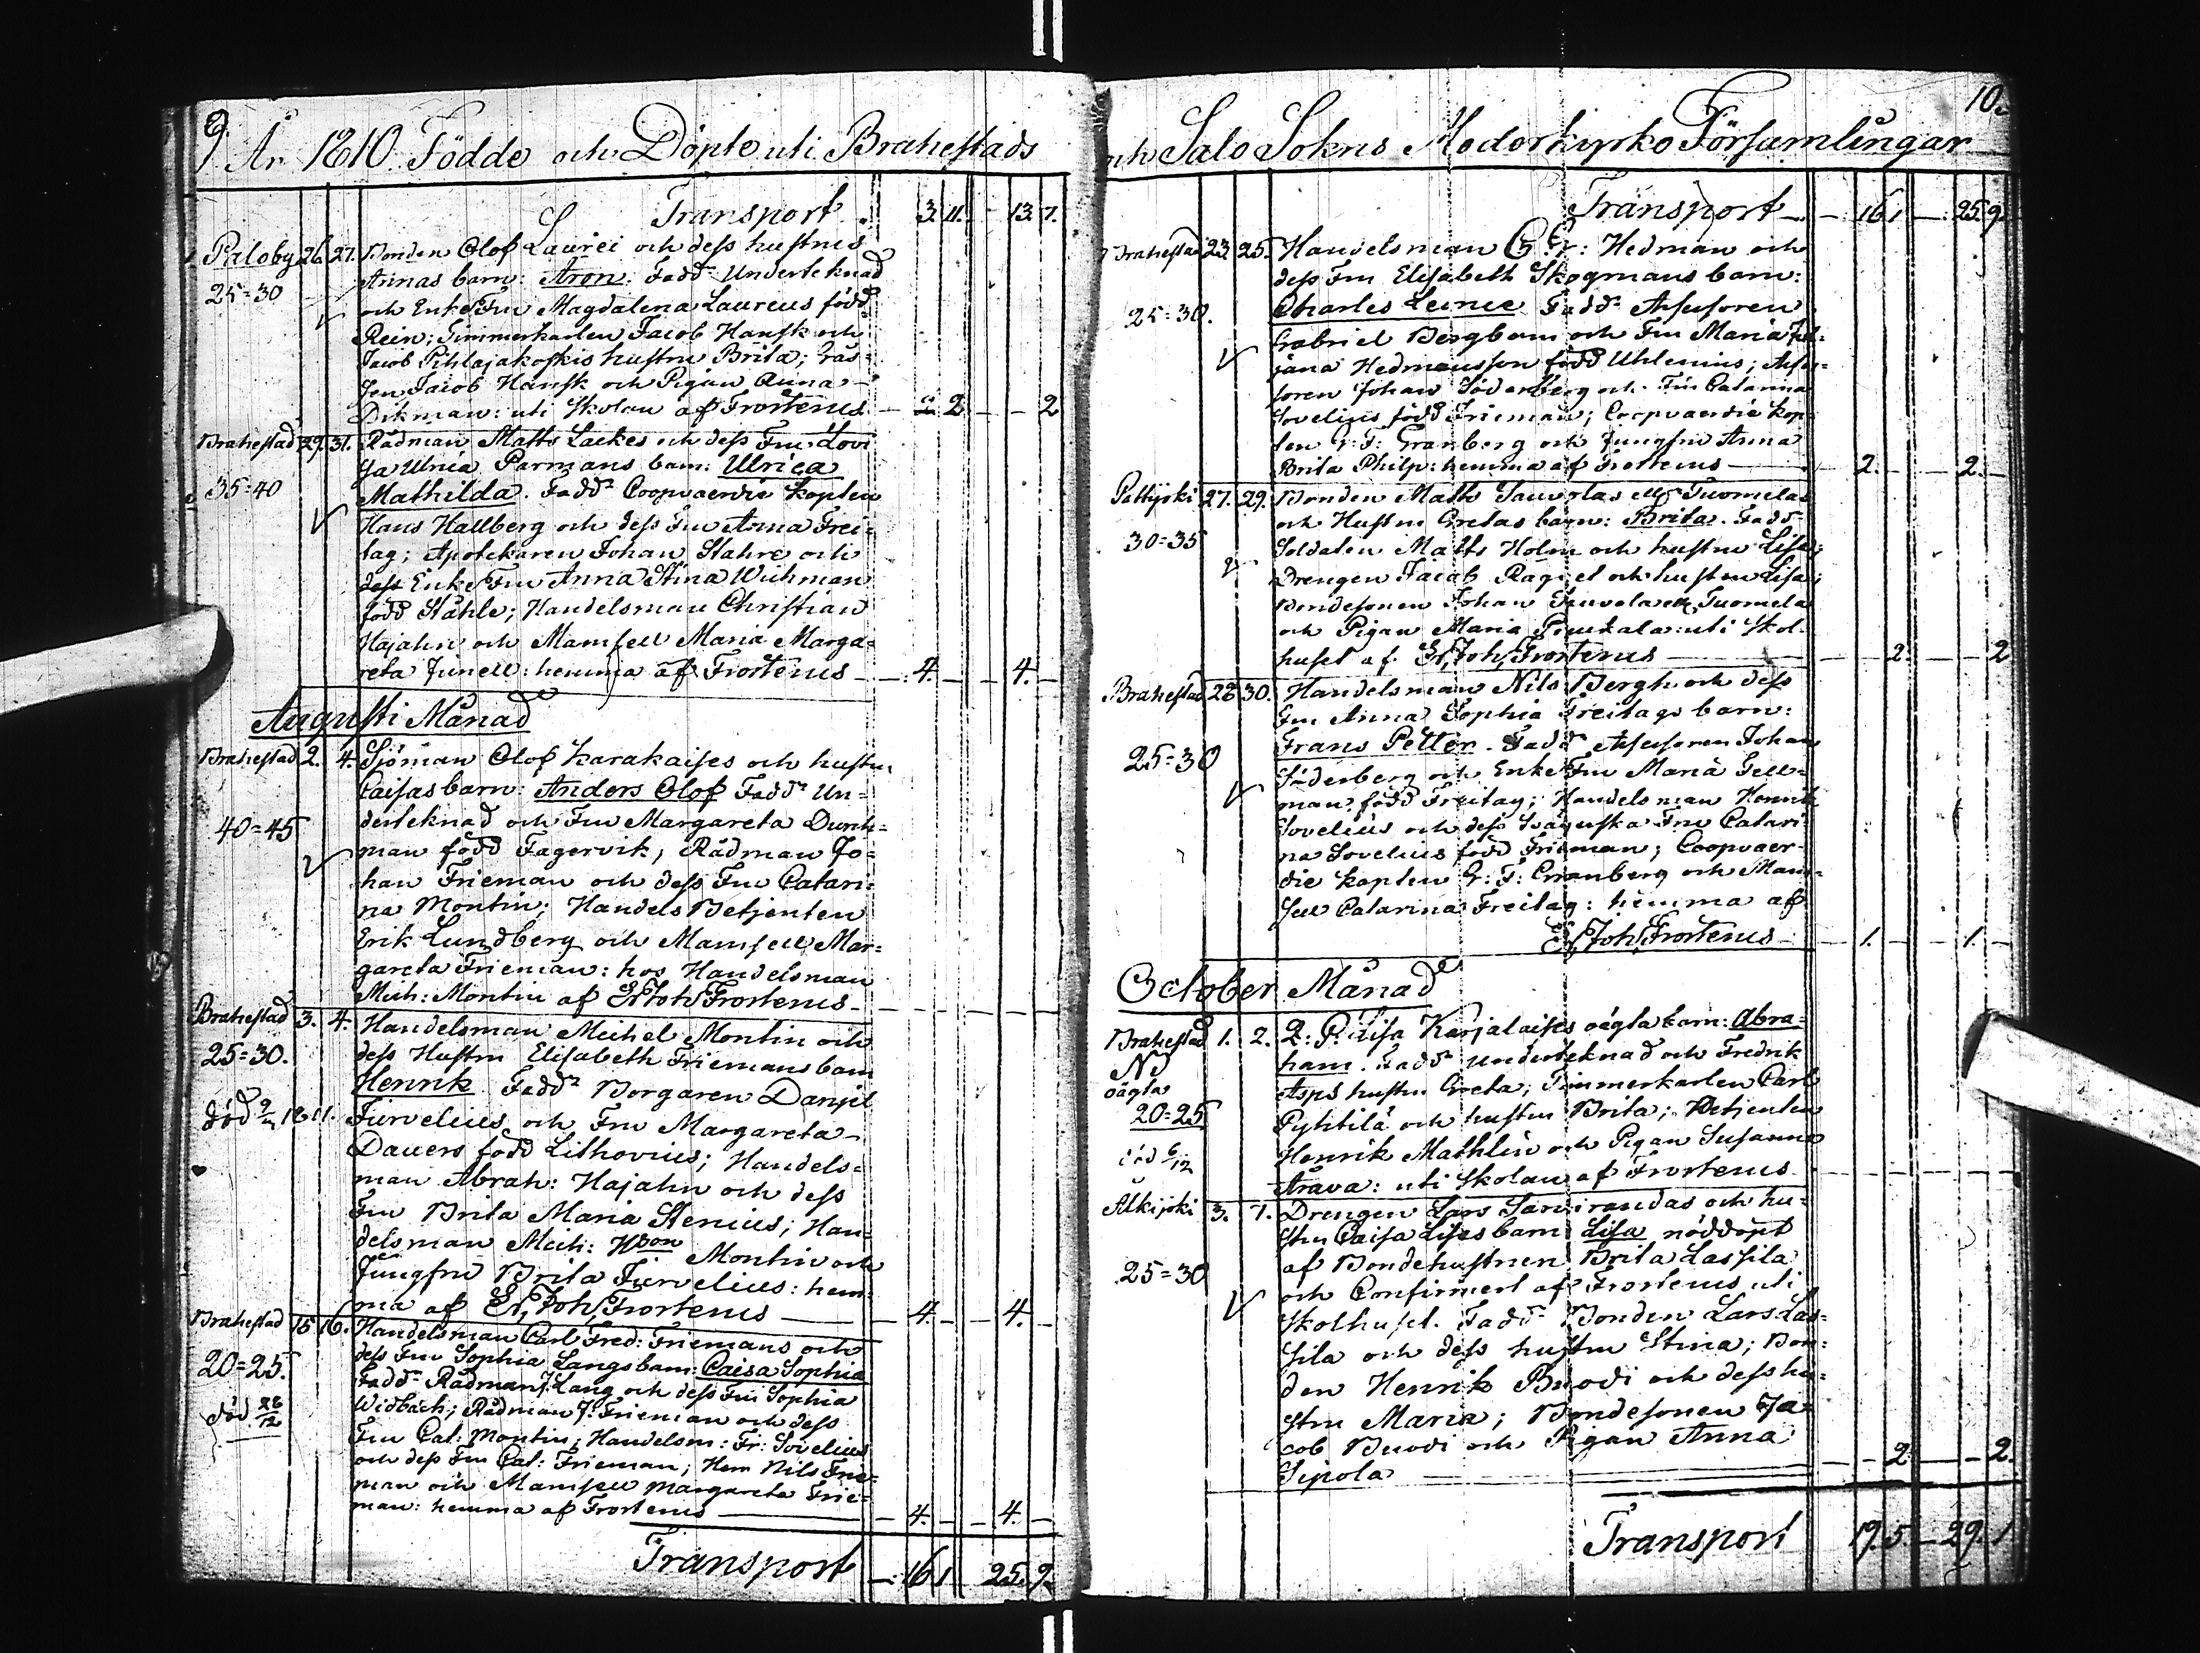 9.
År 1810. Födde och Döpte uti Brahestads
Transport 3. 11. 13. 7.
Paloby 26. 27. Bonden Olof Laurei och dess hustrus
25=30 Annas barn: Aron. Fadd: Underteknad
och Enke Fru Magdalena Laureus född
Rein; Timmerkarlen Jacob Hansk och
Jacob Pihlajakoskis hustru Brita;
Jacob Hansk och Pigan Anna
Dikman: uti Skolan af Frosterus 2 2
Brahestad 29. 31. Rådman Matts Lackes och dess Fru Lovi
sa Ulrica Parmans barn: Ulrica
35=40 Mathilda. Fadd: Coopvaerdie Kapten
Hans Hallberg och dess Fru Anna Frei=
tag; Apotekaren Johan Stahre och
dess Enke Fru Anna Stina Wichman
född Ståhle; Handelsman Christian
Hajahn och Mamsell Maria Marga=
reta Junell: hemma af Frosterus 4. 4.
Augusti Månad
Brahestad 2. 4. Sjöman Olof Karakaises och hustru
Caisas barn: Anders Olof Fadd: Un=
40=45 derteknad och Fru Margareta Dunk=
man född Fagervik; Rådman Jo=
han Frieman och dess Fru Catari=
na Montin; Handels Betjenten
Erik Lundberg och Mamsell Mar=
gareta Frieman: hos Handelsman
Mich: Montin af Er. Joh. Frosterus
Brahestad 3. 4. Handelsman Michel Montin och
25=30. dess Hustru Elisabeth Friemans barn
Henrik Fadd: Borgaren Daniel
död 1811. Jurvelius och Fru Margareta
Dauers född Lithovius; Handels=
man Abrah: Hajahn och dess
Fru Brita Maria Stenius; Han=
delsman Mich: Hson Montin och
Jungfru Brita Jurvelius: hem=
ma af Er. Joh. Frosterus 4. 4.
Brahestad 15 16. Handelsman Carl Fred: Friemans och
dess Fru Sophia Langs barn: Caisa Sophia
20=25. Fadd: Rådman J: Lang och dess Fru Sophia
Widbäck; Rådman J: Frieman och dess
död 28/12 Fru Cat: Montin; Handelsm: Fr: Sovelius
och dess Fru Cat: Frieman; Herr Nils Frie=
man och Mamsell Margareta Frie=
man: hemma af Frosterus 4. 4.
Transport 16 1 25. 9.
10.
och Salo Sokns Moderkyrko Församlingar
Transport 16 1 25. 9.
Brahestad 23. 25. Handelsman G. Gr: Hedman och
dess Fru Elisabeth Skogmans barn:
25=30. Charles Leinie Fadd: Assessoren
Gabriel Bergbom och Fru Maria Jul
jana Hedmansson född Uhlenius; Asses=
soren Johan Söderberg och Fru Catarina
Sovelius född Frieman; Coopvaerdie Kap=
ten G: F: Granberg och Jungfru Anna
Brita Philp: hemma af Frosterus 2. 2.
Pattijoki 27. 29. Bonden Matts Sauvolas eller Tuomelas
och Hustru Gretas barn: Brita. Fadd:
30=35 Soldaten Matts Holm och hustru Lisa;
Drengen Jacob Ragvel och hustru Lisa;
Bondesonen Johan Sauvola eller Tuomela
och Pigan Maria : uti Skol=
huset af Er. Joh. Frosterus 2. 2
Brahestad 28 30. Handelsman Nils Bergh och dess
Fru Anna Sophia Freitags barn:
25=30 Frans Petter. Fadd: Assessoren Johan
Söderberg och Enke Fru Maria Gell=
man född Freitag; Handelsman Henrik
Sovelius och dess Svägerska Fru Catari=
na Sovelius född Frieman; Coopvaer=
die Kapten G: F: Granberg och Mam=
sell Catarina Freitag: hemma af
Er. Joh. Frosterus 1. 1.
October Månad
Brahestad 1. 2. Q: P: Lisa Karjalaises oägta barn: Abra=
ham. Fadd: undertecknad och Fredrik
oägta Asps hustru Greta; Timmerkarlen Carl
20=25 Pyhtilä och hustru Brita; Betjenten
död 6/12 Henrik Mathlin och Pigan Susanna
Arava: uti Skolan af Frosterus
Alkijoki 3. 7. Drengen Lars Sarvirandas och hu=
stru Caisa Lises barn Lisa nöddöpt
25=30 af Bondehustrun Brita Lassila
och Confirmert af Frosterus uti
Skolhuset. Fadd: Bonden Lars Las=
sila och dess hustru Stina; Bon=
den Henrik Buodi och dess hu=
stru Maria; Bondesonen Ja=
cob Buodi och Pigan Anna
Sipola 2 2.
Transport 19. 5. 29. 1